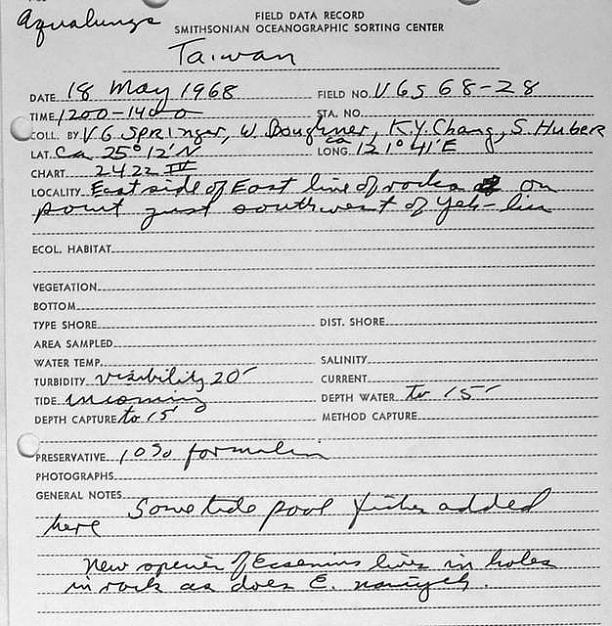 Aqualungs
FIELD DATA RECORD
SMITHSONIAN OCEANOGRAPHIC SORTING CENTER
Taiwan
DATE 18 May 1968 FIELD NO. VGS 68-28
TIME 1200-1400 STA. NO.
COLL. BY VG Springer, W. K.Y. Chang, S. Huber
LAT. Ca 25° 12' N LONG. ca 121° 41' E
CHART 2422 IV
LOCALITY East side of East line of rocks on
point just southwest of Yeh-liu
ECOL. HABITAT
VEGETATION
BOTTOM
TYPE SHORE DIST. SHORE
AREA SAMPLED
WATER TEMP. SALINITY
TURBIDITY visibility 20' CURRENT
TIDE incoming DEPTH WATER to 15'
DEPTH CAPTURE to 15' METHOD CAPTURE
PRESERVATIVE 10% formalin
PHOTOGRAPHS
GENERAL NOTES Some tide pool fishes added
here
New species of Ecsenius lives in holes
in rock as does E. namiyei.